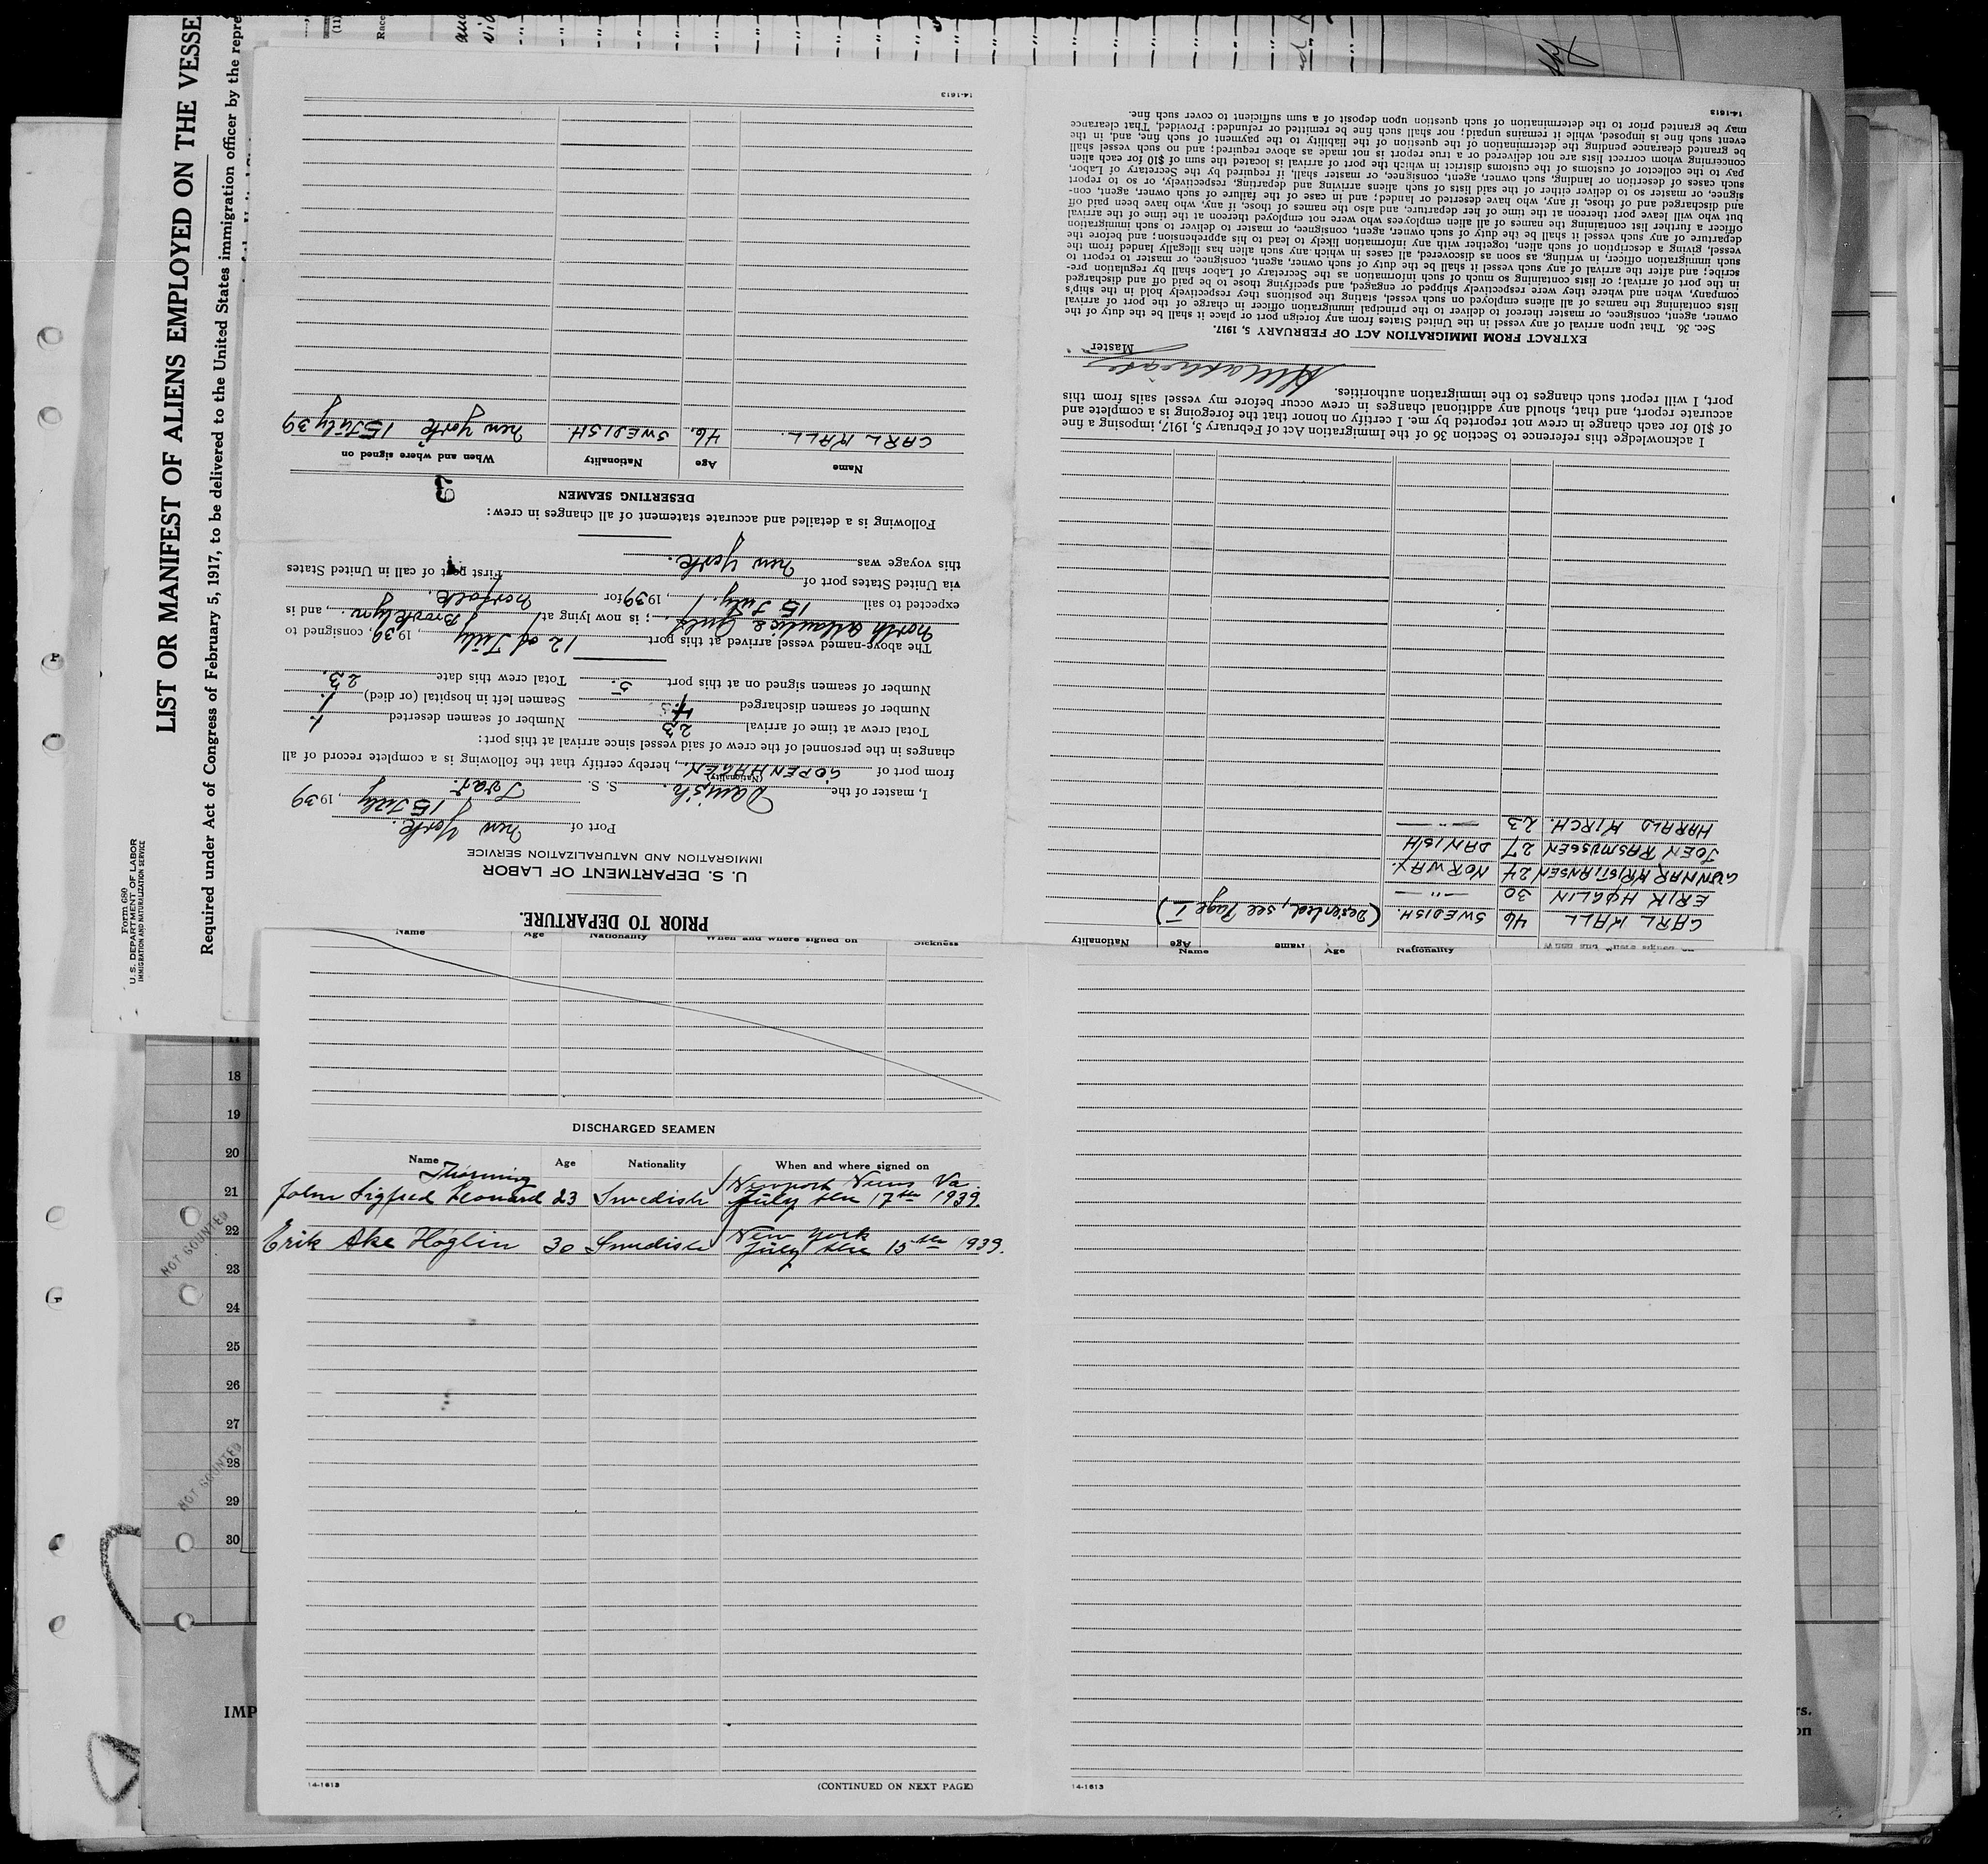 Form 680
U. S. DEPARTMENT OF LABOR
IMMIGRATION AND NATURALIZATION SERVICE
LIST OR MANIFEST OF ALIENS EMPLOYED ON THE VESSE
Required under Act of Congress of February 5, 1917, to be delivered to the United States immigration officer by the repre
PRIOR TO DEPARTURE.
U. S. DEPARTMENT OF LABOR
IMMIGRATION AND NATURALIZATION SERVICE
Port of New York.
15 July, 1939
I, master of the Danish. S. S.
(Nationality)
from port of COPENHAGEN, hereby certify that the following is a complete record of all
changes in the personnel of the crew of said vessel since arrival at this port:
Total crew at time of arrival 23 Number of seamen deserted 1.
Number of seamen discharged Seamen left in hospital (or died) 1.
Number of seamen signed on at this port 5. Total crew this date 23.
The above-named vessel arrived at this port 12 of July, 1939, consigned to
North Atlantic & Gulf; is now lying at Brooklyn., and is
expected to sail 15 July, 1939 for Norfolk.
via United States port of First port of call in United States
this voyage was New York.
Following is a detailed and accurate statement of all changes in crew:
DESERTING SEAMEN
Name Age Nationality When and where signed on
CARL KALL. 46. SWEDISH. New York 15 July 39
14-1613
Name Age Nationality
CARL KALL 46 SWEDISH. (Deserted, see Page I)
ERIK HØGLIN 30 —"—
GUNNAR KRISTIANSEN 24 NORWAY.
JOEN RASMUSSEN 27 DANISH
HARALD KIRCH. 23 —"—
I acknowledge this reference to Section 36 of the Immigration Act of February 5, 1917, imposing a fine
of $10 for each change in crew not reported by me. I certify on honor that the foregoing is a complete and
accurate report, and that, should any additional changes in crew occur before my vessel sails from this
port, I will report such changes to the immigration authorities.
Master
EXTRACT FROM IMMIGRATION ACT OF FEBRUARY 5, 1917.
Sec. 36. That upon arrival of any vessel in the United States from any foreign port or place it shall be the duty of the
owner, agent, consignee, or master thereof to deliver to the principal immigration officer in charge of the port of arrival
lists containing the names of all aliens employed on such vessel, stating the positions they respectively hold in the ship's
company, when and where they were respectively shipped or engaged, and specifying those to be paid off and discharged
in the port of arrival; or lists containing so much of such information as the Secretary of Labor shall by regulation pre-
scribe; and after the arrival of any such vessel it shall be the duty of such owner, agent, consignee, or master to report to
such immigration officer, in writing, as soon as discovered, all cases in which any such alien has illegally landed from the
vessel, giving a description of such alien, together with any information likely to lead to his apprehension; and before the
departure of any such vessel it shall be the duty of such owner, agent, consignee, or master to deliver to such immigration
officer a further list containing the names of all alien employees who were not employed thereon at the time of the arrival
but who will leave port thereon at the time of her departure, and also the names of those, if any, who have been paid off
and discharged and of those, if any, who have deserted or landed; and in case of the failure of such owner, agent, con-
signee, or master so to deliver either of the said lists of such aliens arriving and departing, respectively, or so to report
such cases of desertion or landing, such owner, agent, consignee, or master shall, if required by the Secretary of Labor,
pay to the collector of customs of the customs district in which the port of arrival is located the sum of $10 for each alien
concerning whom correct lists are not delivered or a true report is not made as above required; and no such vessel shall
be granted clearance pending the determination of the question of the liability to the payment of such fine, and, in the
event such fine is imposed, while it remains unpaid; nor shall such fine be remitted or refunded: Provided, That clearance
may be granted prior to the determination of such question upon deposit of a sum sufficient to cover such fine.
14-1613
Name Age Nationality When and where signed on Sickness
DISCHARGED SEAMEN
Name Age Nationality When and where signed on
Thörning
John Sigfred Leonard 23 Swedish Newport News Va.
July the 17th 1939.
Erik Ake Höglin 30 Swedish New York
July the 15th 1939.
14-1613
(CONTINUED ON NEXT PAGE)
Name Age Nationality
14-1613
18
19
20
21
22
23
24
25
26
27
28
29
30
NOT COUNTED
NOT COUNTED
IMP
rs.
on